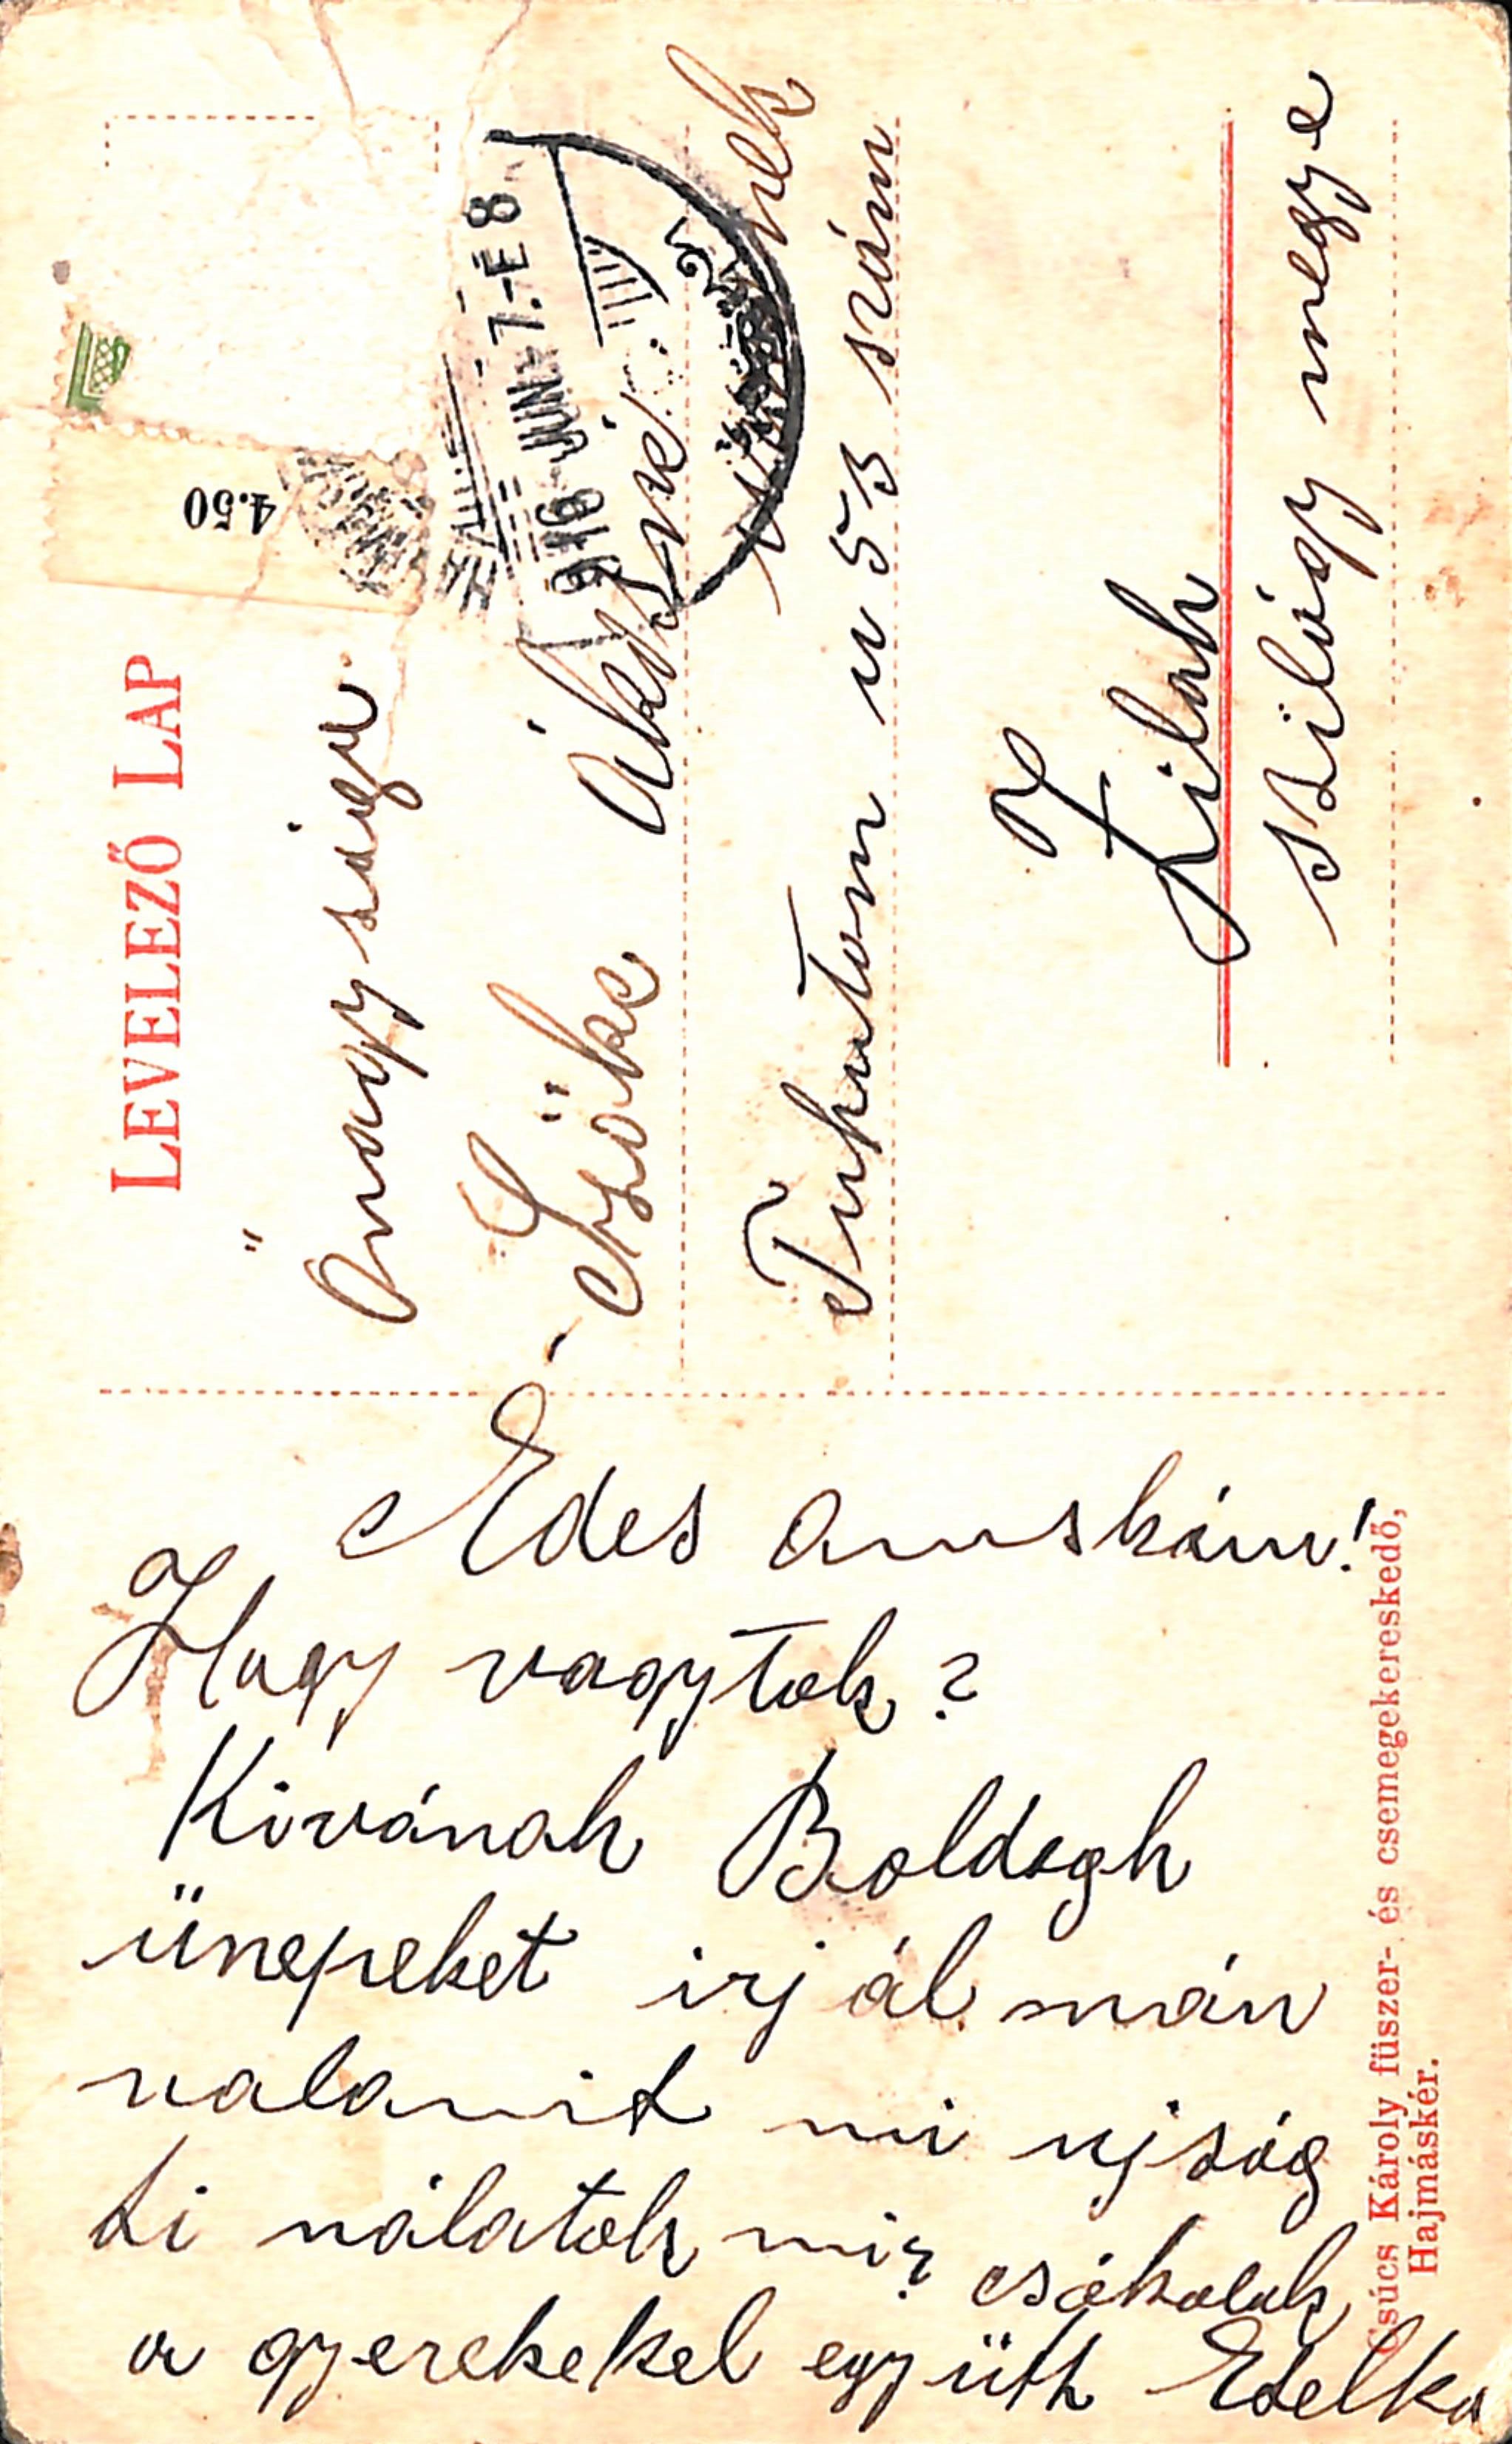 LEVELEZŐ LAP
4.50
916 JUN -7.-E 8
Őnagysága
Szőke Ákosné
urnőnek
Tuhutum u 53 szám
Zilah
szilágy megye
Édes anuskám!
Hugy vagytok?
Kivánok Boldogh
ünepeket irjál mán
valamit mi ujság
ti nálatok mi? csókolok
a gyerekekel együtt Etelka
Csúcs Károly füszer- és csemegekereskedő,
Hajmáskér.